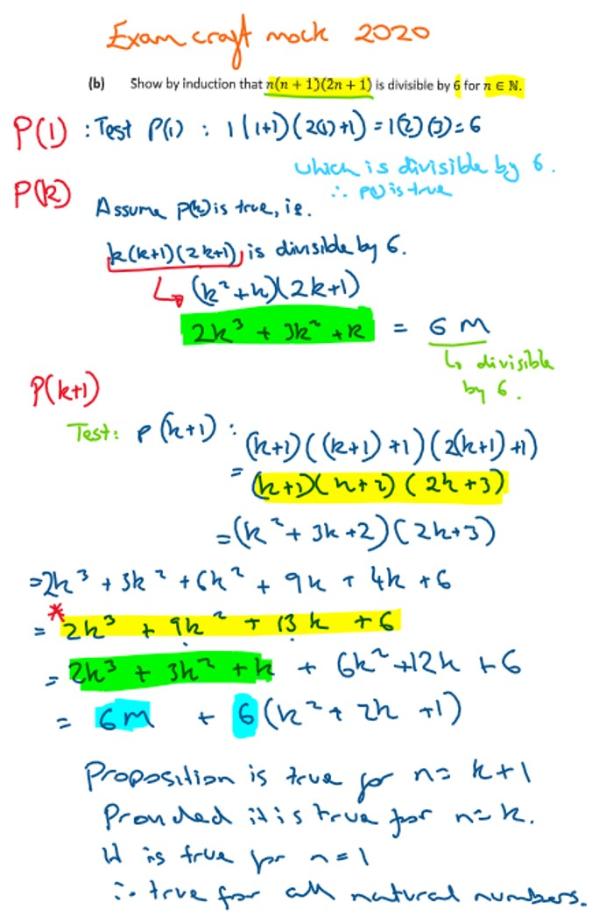 Exam craft mock 2020
(b) Show by induction that n(n + 1)(2n + 1) is divisible by 6 for n ∈ ℕ.
P(1) : Test P(1) : 1(1+1)(2(1)+1) = 1(2)(3) = 6
which is divisible by 6.
∴ P(1) is true
P(k)
Assume P(k) is true, ie.
k(k+1)(2k+1), is divisible by 6.
(k²+k)(2k+1)
2k³ + 3k² + k = 6M
↳ divisible
by 6.
P(k+1)
Test: P(k+1) : (k+1)((k+1)+1)(2(k+1)+1)
= (k+1)(k+2)(2k+3)
= (k² + 3k + 2)(2k+3)
= 2k³ + 3k² + 6k² + 9k + 4k + 6
*
= 2k³ + 9k² + 13k + 6
= 2k³ + 3k² + k + 6k² + 12k + 6
= 6M + 6(k² + 2k + 1)
Proposition is true for n = k+1
Provided it is true for n = k.
It is true for n = 1
∴ true for all natural numbers.